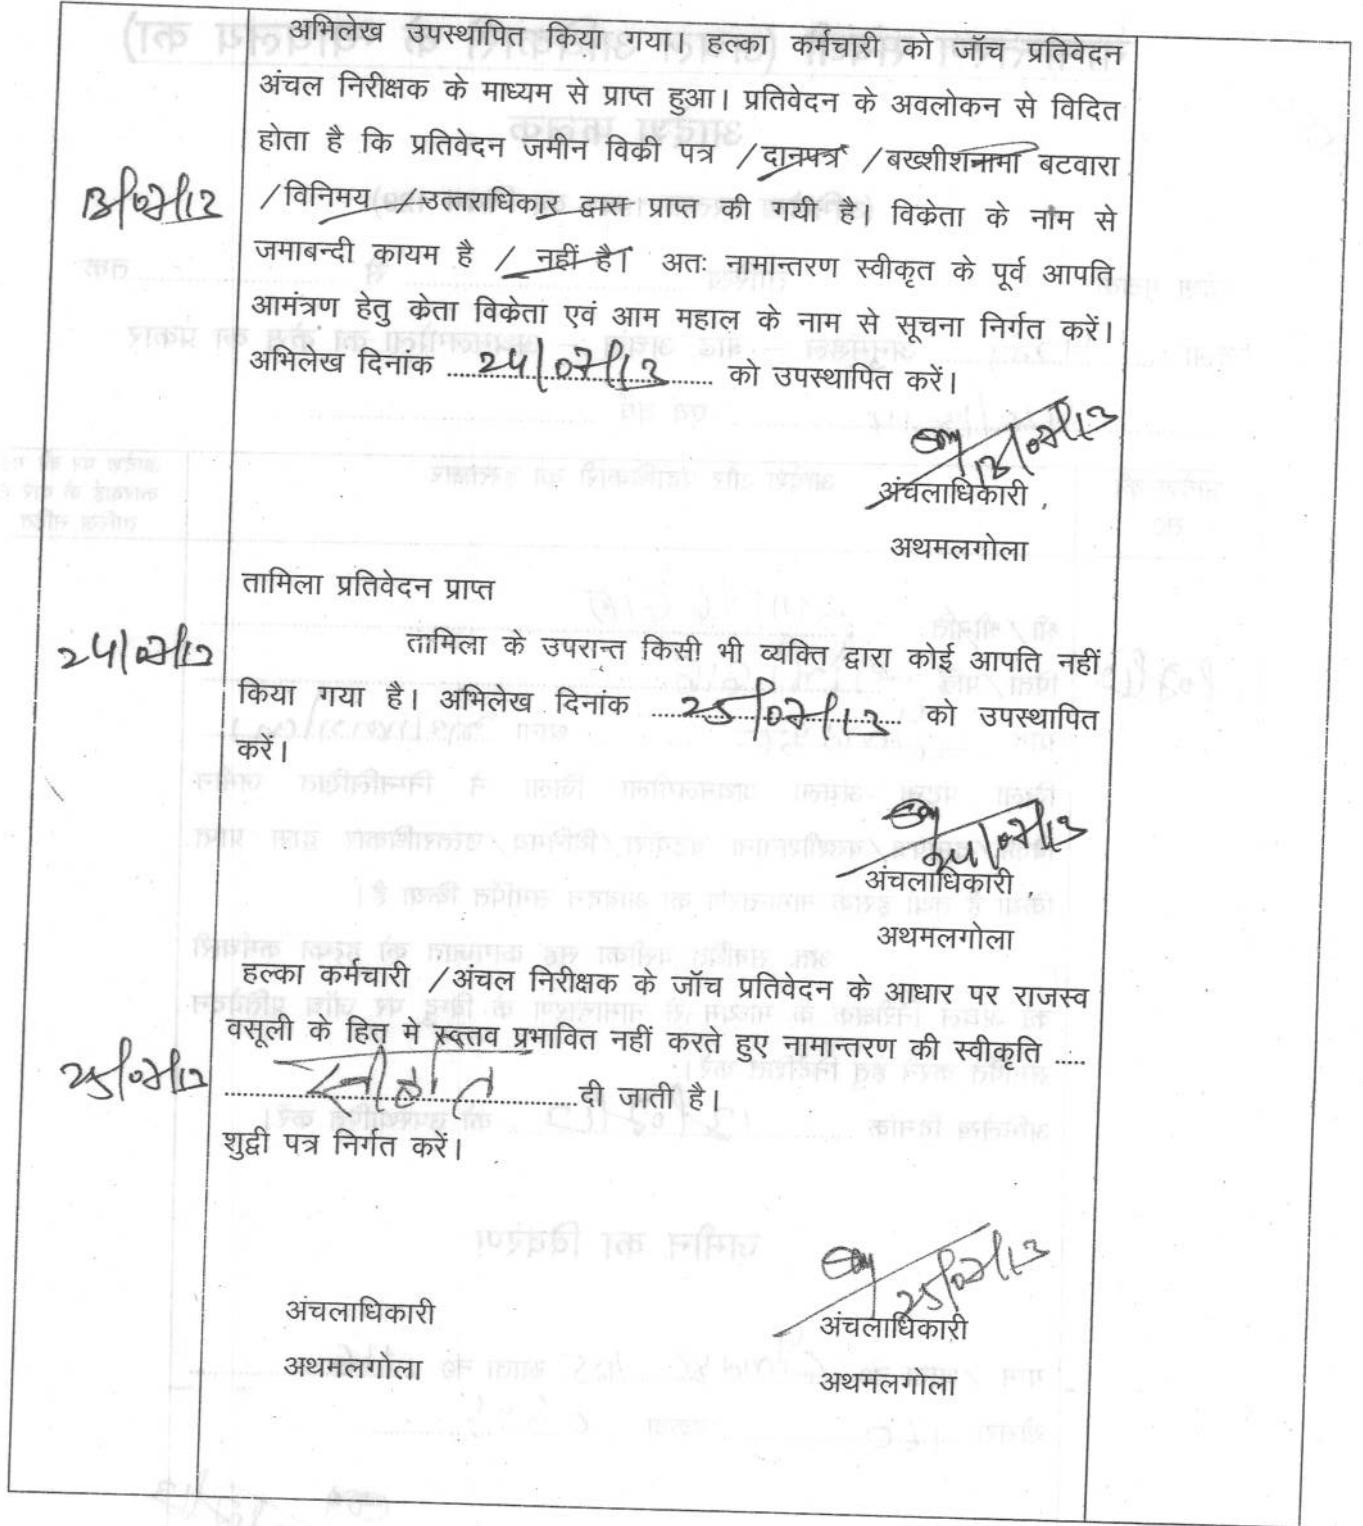 अभिलेख उपस्थापित किया गया। हल्का कर्मचारी को जॉच प्रतिवेदन
अंचल निरीक्षक के माध्यम से प्राप्त हुआ। प्रतिवेदन के अवलोकन से विदित
होता है कि प्रतिवेदन जमीन विकी पत्र /दानपत्र /बख्शीशनामा बटवारा
13/07/13
/विनिमय /उत्तराधिकार द्वारा प्राप्त की गयी है। विकेता के नाम से
जमाबन्दी कायम है / नहीं है। अतः नामान्तरण स्वीकृत के पूर्व आपति
आमंत्रण हेतु केता विकेता एवं आम महाल के नाम से सूचना निर्गत करें।
अभिलेख दिनांक 24/07/13 को उपस्थापित करें।
13/07/13
अंचलाधिकारी,
अथमलगोला
तामिला प्रतिवेदन प्राप्त
24/07/13
तामिला के उपरान्त किसी भी व्यक्ति द्वारा कोई आपति नहीं
किया गया है। अभिलेख दिनांक 25/07/13 को उपस्थापित
करें।
24/07/13
अंचलाधिकारी,
अथमलगोला
हल्का कर्मचारी /अंचल निरीक्षक के जॉच प्रतिवेदन के आधार पर राजस्व
वसूली के हित मे स्वत्तव प्रभावित नहीं करते हुए नामान्तरण की स्वीकृति .....
25/07/13
दी जाती है।
शुद्वी पत्र निर्गत करें।
25/07/13
अंचलाधिकारी अंचलाधिकारी
अथमलगोला अथमलगोला